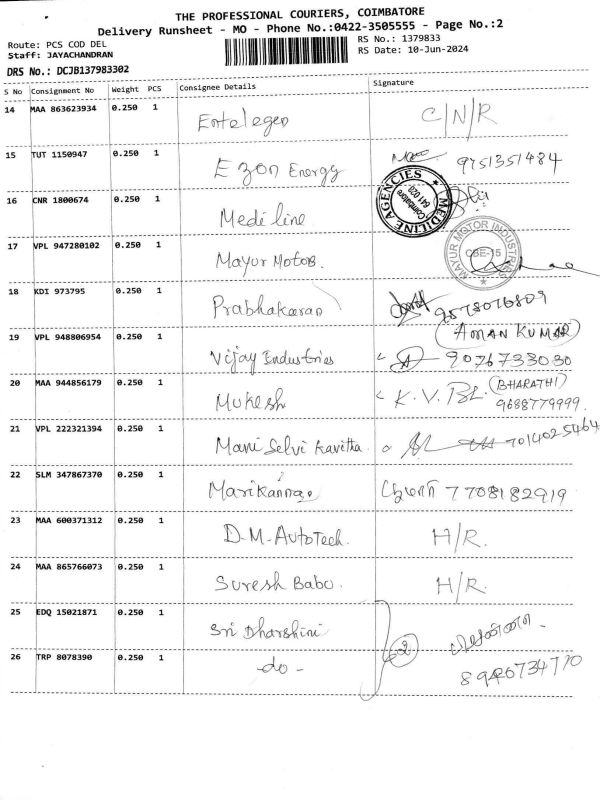 THE PROFESSIONAL COURIERS, COIMBATORE
Delivery Runsheet - MO - Phone No.:0422-3505555 - Page No.:2
Route: PCS COD DEL
Staff: JAYACHANDRAN
RS No.: 1379833
RS Date: 10-Jun-2024
DRS No.: DCJB137983302
S No Consignment No Weight PCS Consignee Details Signature
14 MAA 863623934 0.250 1 Entelegen C/N/R
15 TUT 1150947 0.250 1 Ezon Energy 9751351484
16 CNR 1800674 0.250 1 Mediline MEDILINE AGENCIES Coimbatore 641 020
17 VPL 947280102 0.250 1 Mayur Motors. MAYUR MOTOR INDUSTRIES CBE-15
18 KDI 973795 0.250 1 Prabhakaran 9578076809
19 VPL 948806954 0.250 1 Vijay Industries (AMAN KUMAR) 9076733030
20 MAA 944856179 0.250 1 Mukesh K. V. (BHARATHI) 9688779999
21 VPL 222321394 0.250 1 Mani Selvi Kavitha 7014025464
22 SLM 347867370 0.250 1 7708182919
23 MAA 600371312 0.250 1 D.M. AutoTech. H/R.
24 MAA 865766073 0.250 1 Suresh Babu. H/R.
25 EDQ 15021871 0.250 1 Sri Dharshini
26 TRP 8078390 0.250 1 -do- 2